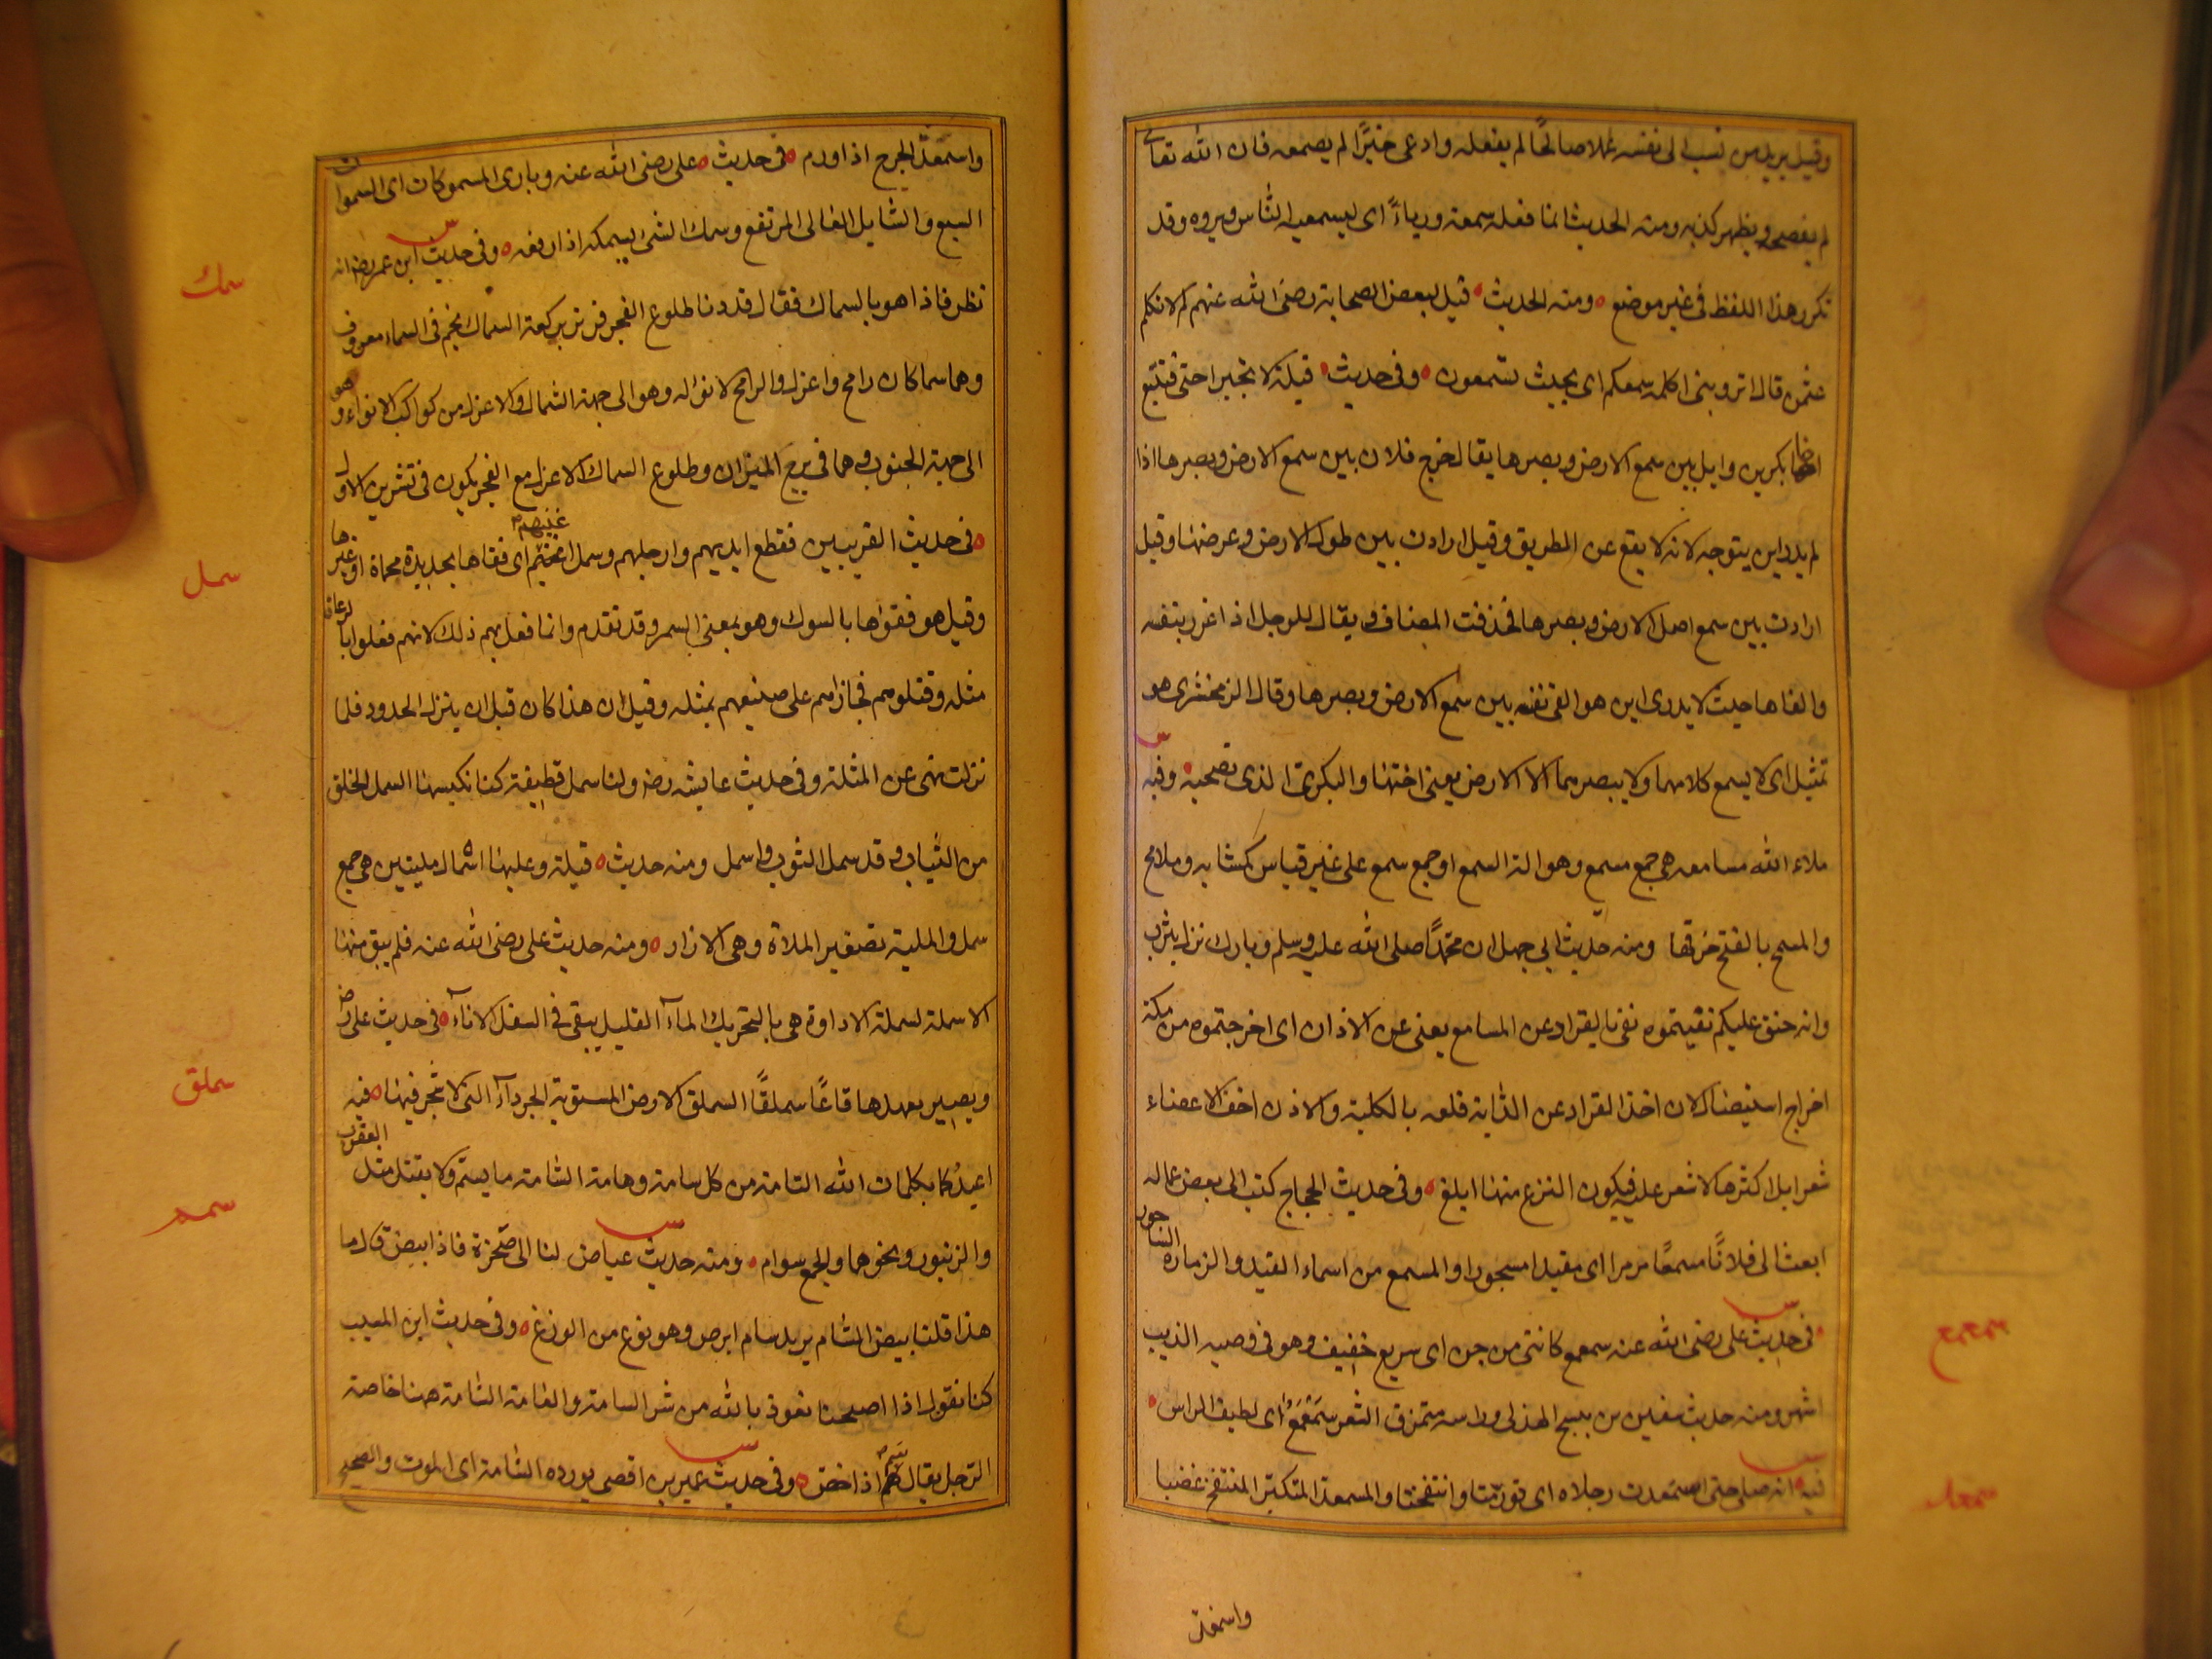 وقيل يريد من نسب الى نفسه عملا صالحًا لم يفعله وادعى خيرًا لم يصمعه فان الله تعالى
لم يفضحه ويظهر كذبه ومنه الحديث انما فعله سمعة ورياءً اى ليسمعه الناس ويروه وقد
تكرر هذا اللفظ فى غير موضع ومنه الحديث قيل لبعض الصحابة رضى الله عنهم لم لا تكلم
عثمن قال اترونني اكلمه سمعكم اى بحيث تسمعون وفى حديث قيلة لا تخبر اختى فتتبع
اخا بكر بن وايل بين سمع الارض وبصرها يقال خرج فلان بين سمع الارض وبصرها اذا
لم يدر اين يتوجه لانه لا يقع عن الطريق وقيل ارادت بين طول الارض وعرضها وقيل
ارادت بين سمع اهل الارض وبصرها فحذفت المضاف ويقال للرجل اذا غرر بنفسه
والقاها حيث لا يدرى اين هو القى نفسه بين سمع الارض وبصرها وقال الزمخشرى هو
تمثيل اى لا يسمع كلامهما ولا يبصرهما الا الارض يعنى اختها والبكرى الذى تصحبه وفيه
ملاء الله مسامعه هى جمع مسمع وهو الة السمع او جمع سمع على غير قياس كمشابه وملامح
والمسمع بالفتح خرقها ومنه حديث ابى جهل ان محمدًا صلى الله عليه وسلم وبارك نزل يثرب
وانه حنق عليكم نفيتموه نفى القراد عن المسامع يعنى عن الاذان اى اخرجتموه من مكة
اخراج استيصال لان اخذ القراد عن الدابة قلعه بالكلية والاذن اخف الاعضاء
شعرا بل اكثرها لا شعر عليه فيكون النزع منها ابلغ وفى حديث الحجاج كتب الى بعض عماله
ابعث الى فلانًا مسمعًا مزمرا اى مقيدا مسجورا والمسمع من اسماء القيد والزمارة الساجور
فى حديث على رضى الله عنه سمعمع كاننى من جن اى سريع خفيف وهو فى وصيه الذيب
اشهر ومنه حديث سفين بن نبيح الهذلى وراسه متمزق الشعر سمعمع اى لطيف الراس
فيه انه صلى حتى اسمعدت رجلاه اى تورمتا وانتفختا والمسمعد المتكبر المنتفخ غضبا
سمعمع
سمعد
واسمعد
واسمعدّ الجرح اذا ورم فى حديث على رضى الله عنه وبارى المسموكات اى السموات
السبع والشايل العالى المرتفع وسمك الشئ يسمكه اذا رفعه وفى حديث ابن عمر رضه انه
نظر فاذا هو بالسماك فقال قد دنا طلوع الفجر فاوتر بركعة السماك نجم فى السماء معروف
وهما سماكان رامح واعزل والرامح لا نؤ له وهو الى جهة الشمال والاعزل من كواكب الانواء وهو
الى جهة الجنوب وهما فى برج الميزان وطلوع السماك الاعزل مع الفجر يكون فى تشرين الاول
فى حديث القريبين فقطع ايديهم وارجلهم وسمل اعينهم اى فقاها بحديدة محماة او غيرها
وقيل هو فقؤها بالسوك وهو بمعنى السمر وقد تقدم وانما فعل بهم ذلك لانهم فعلوا بالرعاة
مثله وقتلوهم فجازاهم على صنيعهم بمثله وقيل ان هذا كان قبل ان ينزل الحدود فلما
نزلت نهى عن المثلة وفى حديث عايشة رضه ولنا سمل قطيفة كنا نكبسها السمل الخلق
من الثياب وقد سمل الثوب واسمل ومنه حديث قيلة وعليها اسمال مليتين هى جمع
سمل والملية تصغير الملاة وهى الازار ومنه حديث على رضى الله عنه فلم يبق منها
الا سملة لسملة الاداوة هى بالتحريك الماء القليل يبقى فى اسفل الاناء فى حديث على رضه
ويصير معهدها قاعًا سملقًا السملق الارض المستوية الجرداء التى لا شجر فيها فيه
اعيذكما بكلمات الله التامة من كل سامة وهامة السامة ما يسم ولا يقتل مثل العقرب
والزنبور ونحوهما والجمع سوام ومنه حديث عياض لنا الى صخرة فاذا بيض قال ما
هذا قلنا بيض السام يريد سام ابرص وهو نوع من الوزغ وفى حديث ابن المسيب
كنا نقول اذا اصبحنا نعوذ بالله من شر السامة والعامة السامة ههنا خاصة
الرجل يقال سم اذا خص وفى حديث عمير بن اقصى يورده السامة اى الموت والصحيح
سمك
سمل
سملق
سمم